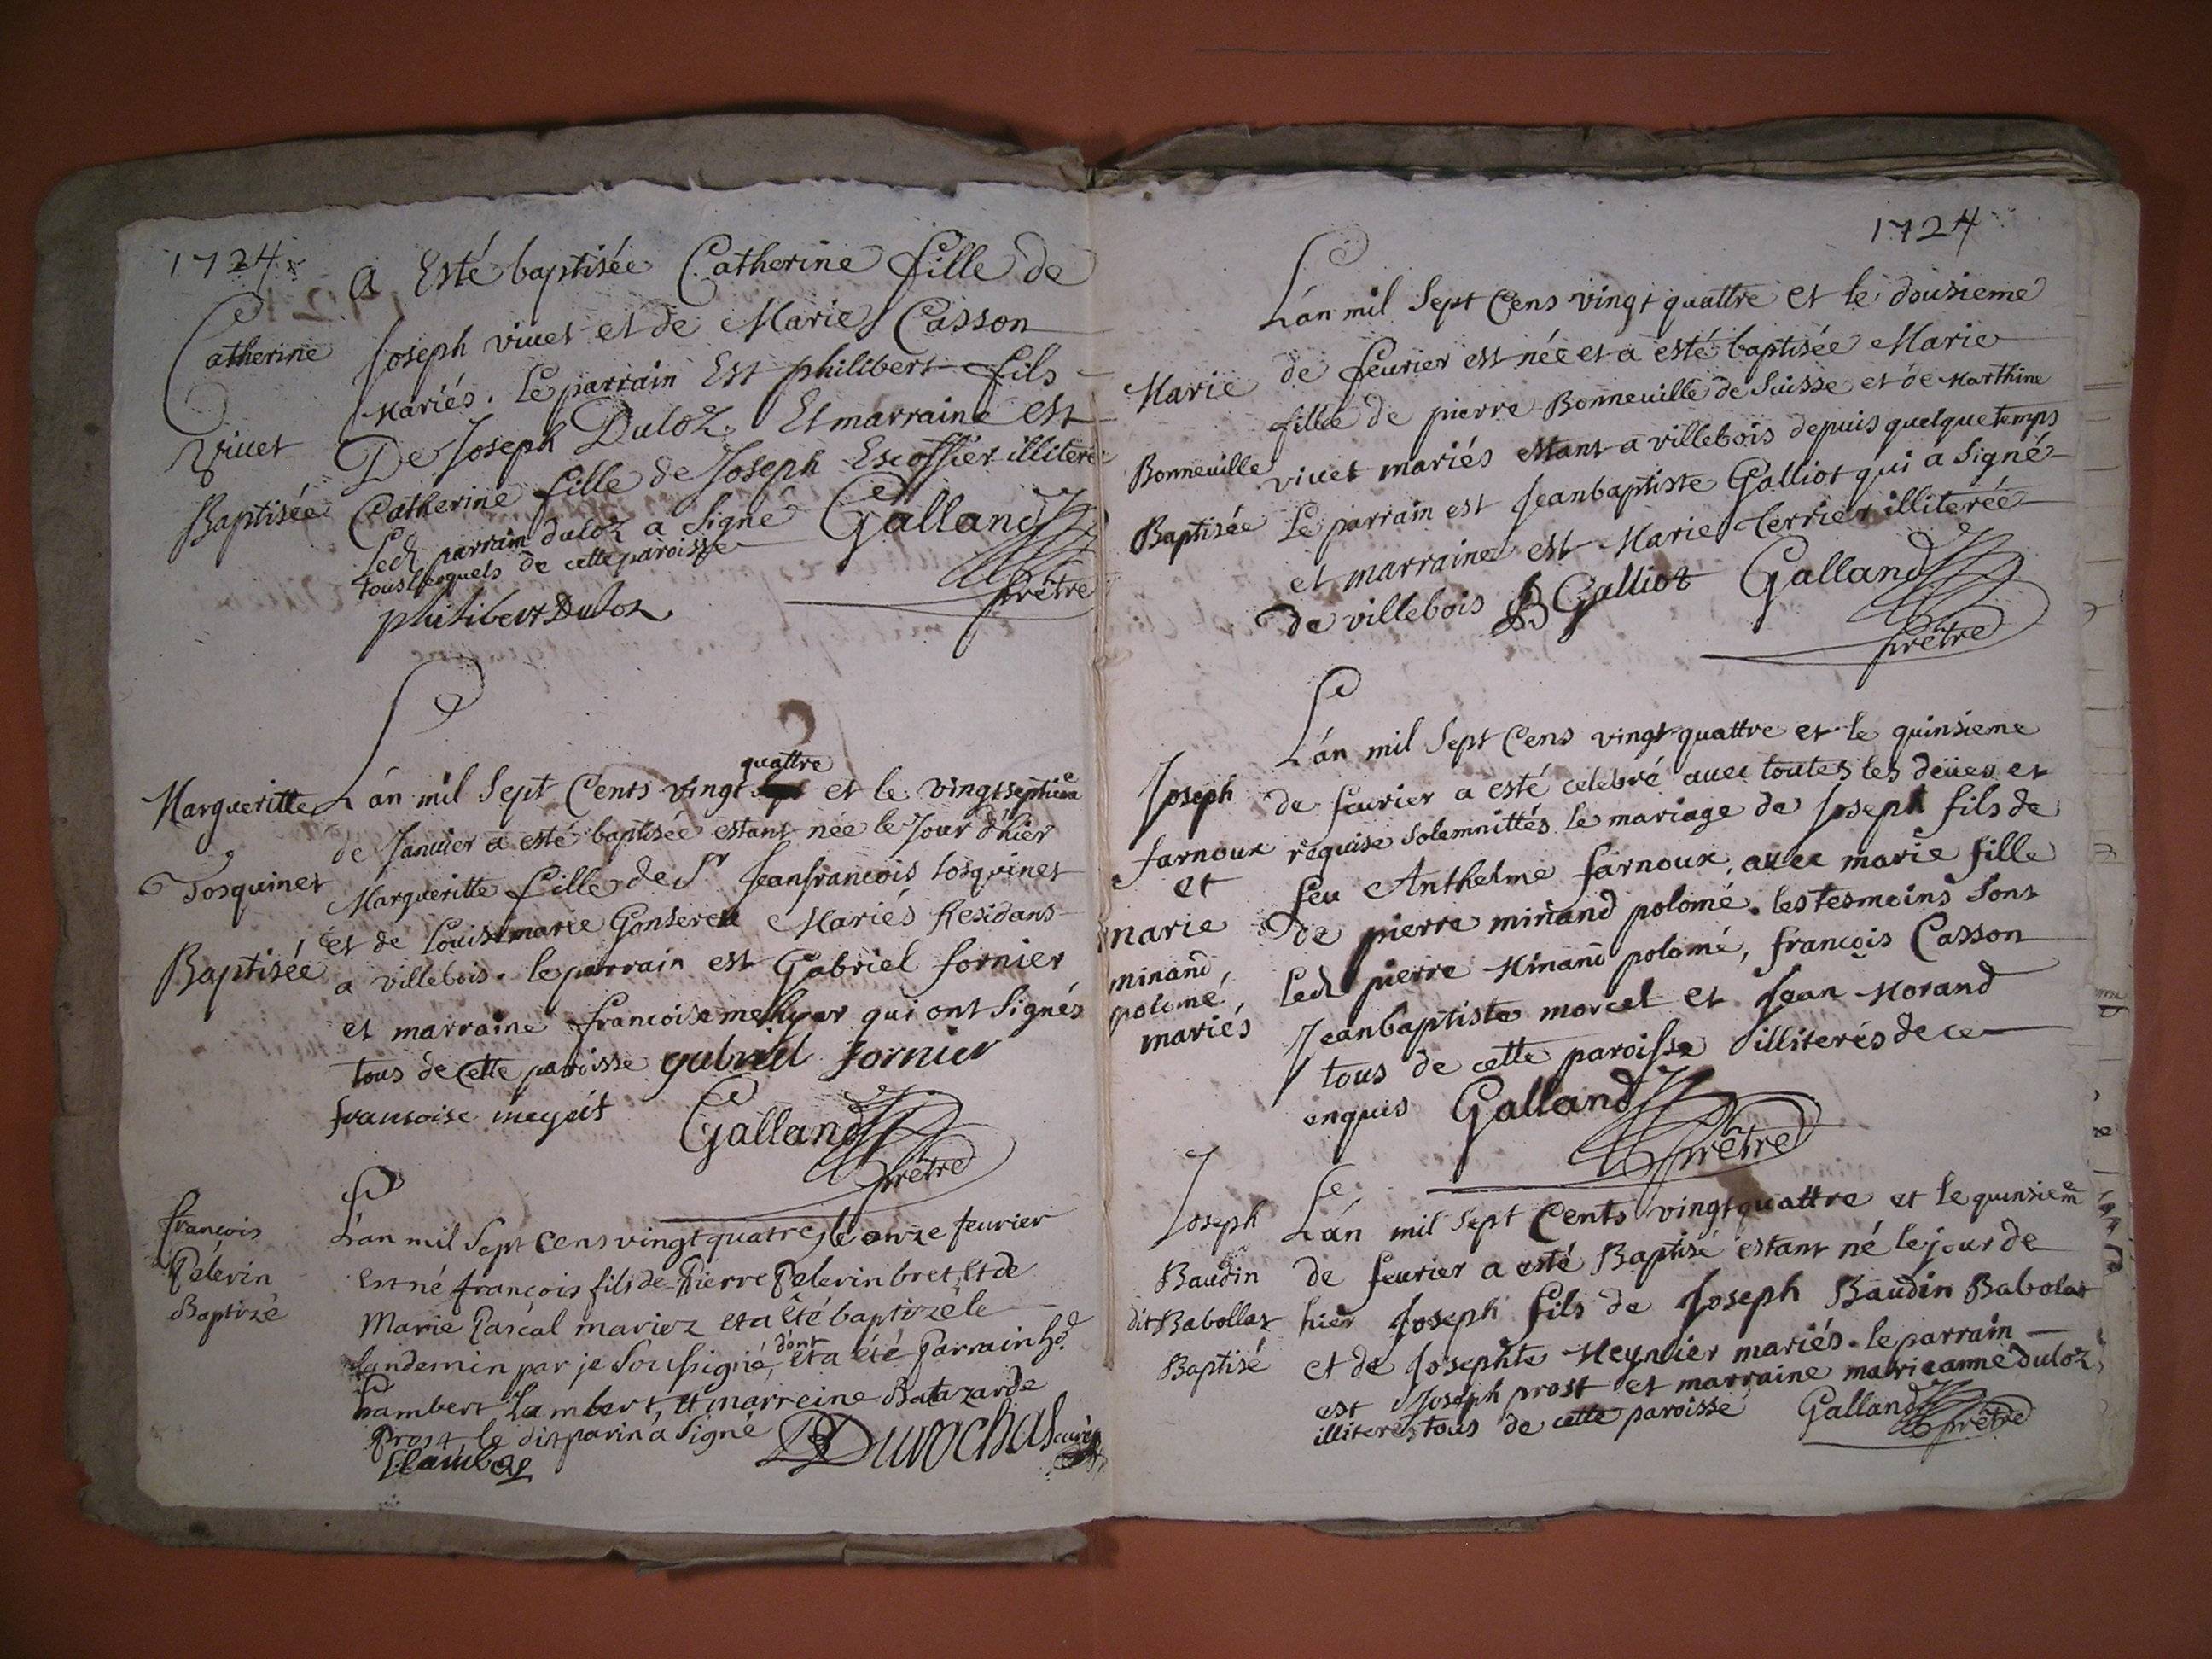 1724
Catherine
vivet
Baptisée
a Esté baptisée Catherine fille de
Joseph vivet et de Marie Casson
Mariés. le parrain Est philibert fils
De Joseph Duloz. Et marraine est
Catherine fille de Joseph Escoffier illiteré
led parrain duloz a signé Galland
tous lesquels de cette paroisse
prêtre
philibert Duloz
Margueritte
Tosquinet
Baptisée
L'an mil Sept Cents vingt quattre et le vingtseptiem
de Janvier a esté baptisée estant née le Jour d'hier
Margueritte fille de Sr Jeanfrancois tosquinet
et de Louise marie Mariés Residans
a villebois. le parrain est Gabriel fornier
et marraine francoise qui ont signés
tous de cette paroisse gabriel fornier
francoise Galland
prêtre
francois
Pelerin
Baptizé
L'an mil Sept Cens vingt quatre, le onze feurier
Est né françois fils de Pierre Pelerin bret, et de
Marie Pascal mariez et a été baptizé le
landemin par je Soussigné, dont et a été Parrain hd.
Lambert, et marreine Batazarde
prost le dit parin a signé
1724
Marie
Bonneuille
Baptisée
L'an mil Sept Cens vingt quattre et le dousieme
de feurier est née et a esté baptisée Marie
fille de pierre Bonneuille de Suisse et de Marthine
vivet mariés estant a villebois depuis quelque temps
Le parrain est Jeanbaptiste Galliot qui a signé
et marraine est Marie terrier illiterée
de villebois JB Galliot Galland
prêtre
Joseph
farnoux
et
marie
minand
polomé,
mariés
L'an mil Sept Cens vingt quattre et le quinsieme
de feurier a esté celebré auec toutes les deües et
requise solemnittés le mariage de Joseph fils de
feu Anthelme farnoux, auec marie fille
de pierre minand polomé. les tesmoins sont
led pierre Minand polomé, françois Casson
Jeanbaptiste morcel et Jean Morand
tous de cette paroisse illiterés de ce
enquis Galland
prêtre
Joseph
Baudin
dit Babollat
Baptisé
L'an mil Sept Cents vingt quattre et le quinsiem
de feurier a esté Baptisé estant né le jour de
hier Joseph fils de Joseph Baudin Babolat
et de Josephte Meynier mariés. le parrain
est Joseph prost et marraine marieanne duloz
illiterés tous de cette paroisse Galland
prêtre